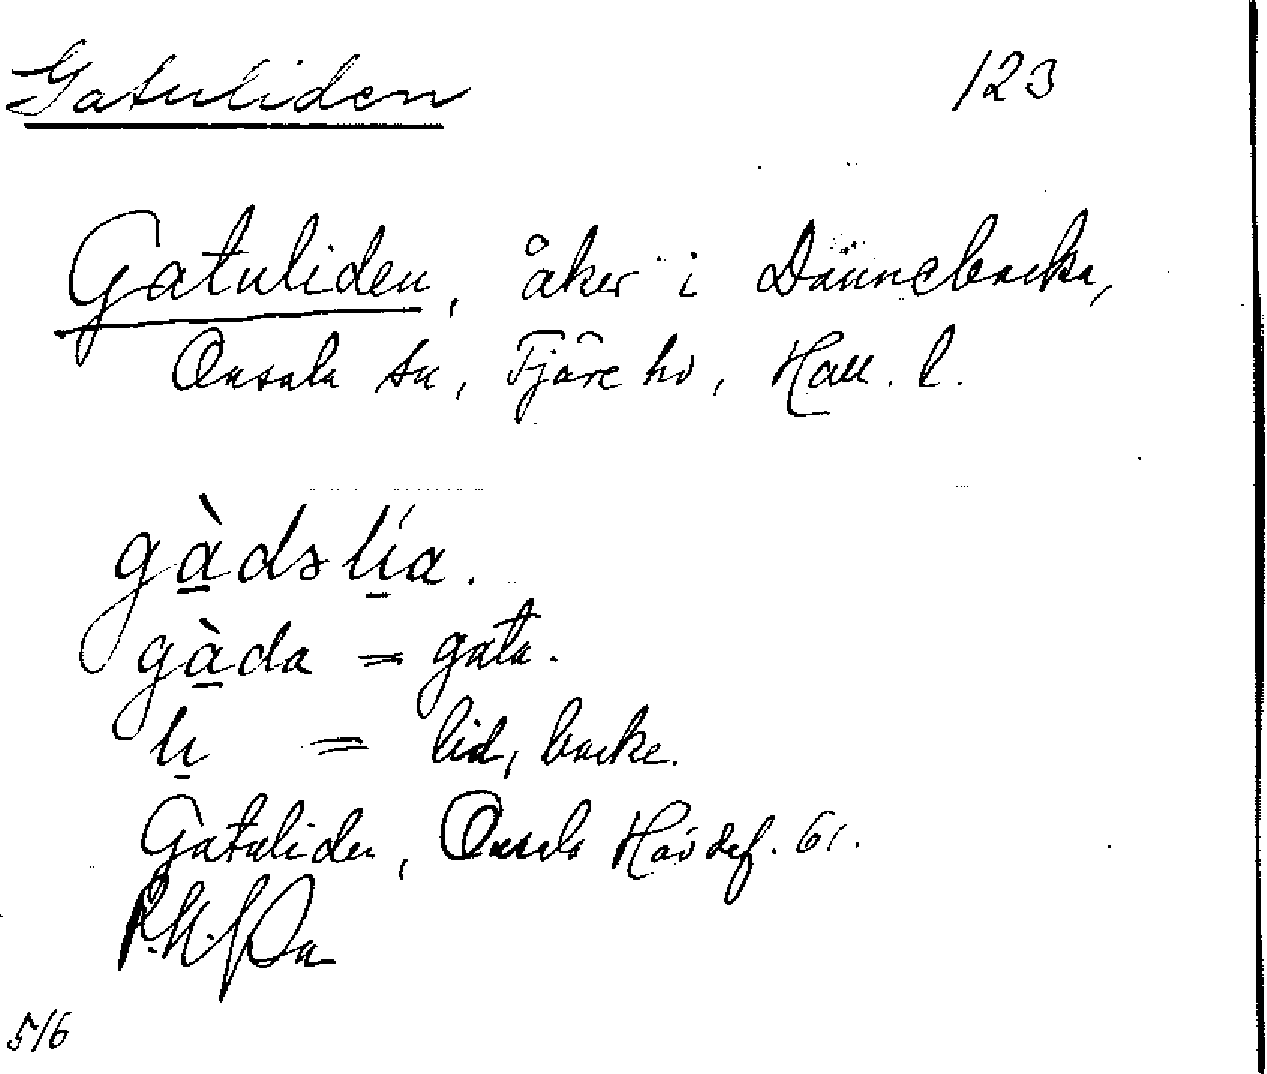 Gatuliden 123
Gatuliden, åker i Dännebacka,
Onsala sn, Fjäre hd, Hall. l.
gàdslía.
gàda = gata.
li = lid, backe.
Gatuliden, Onsala 61.
516